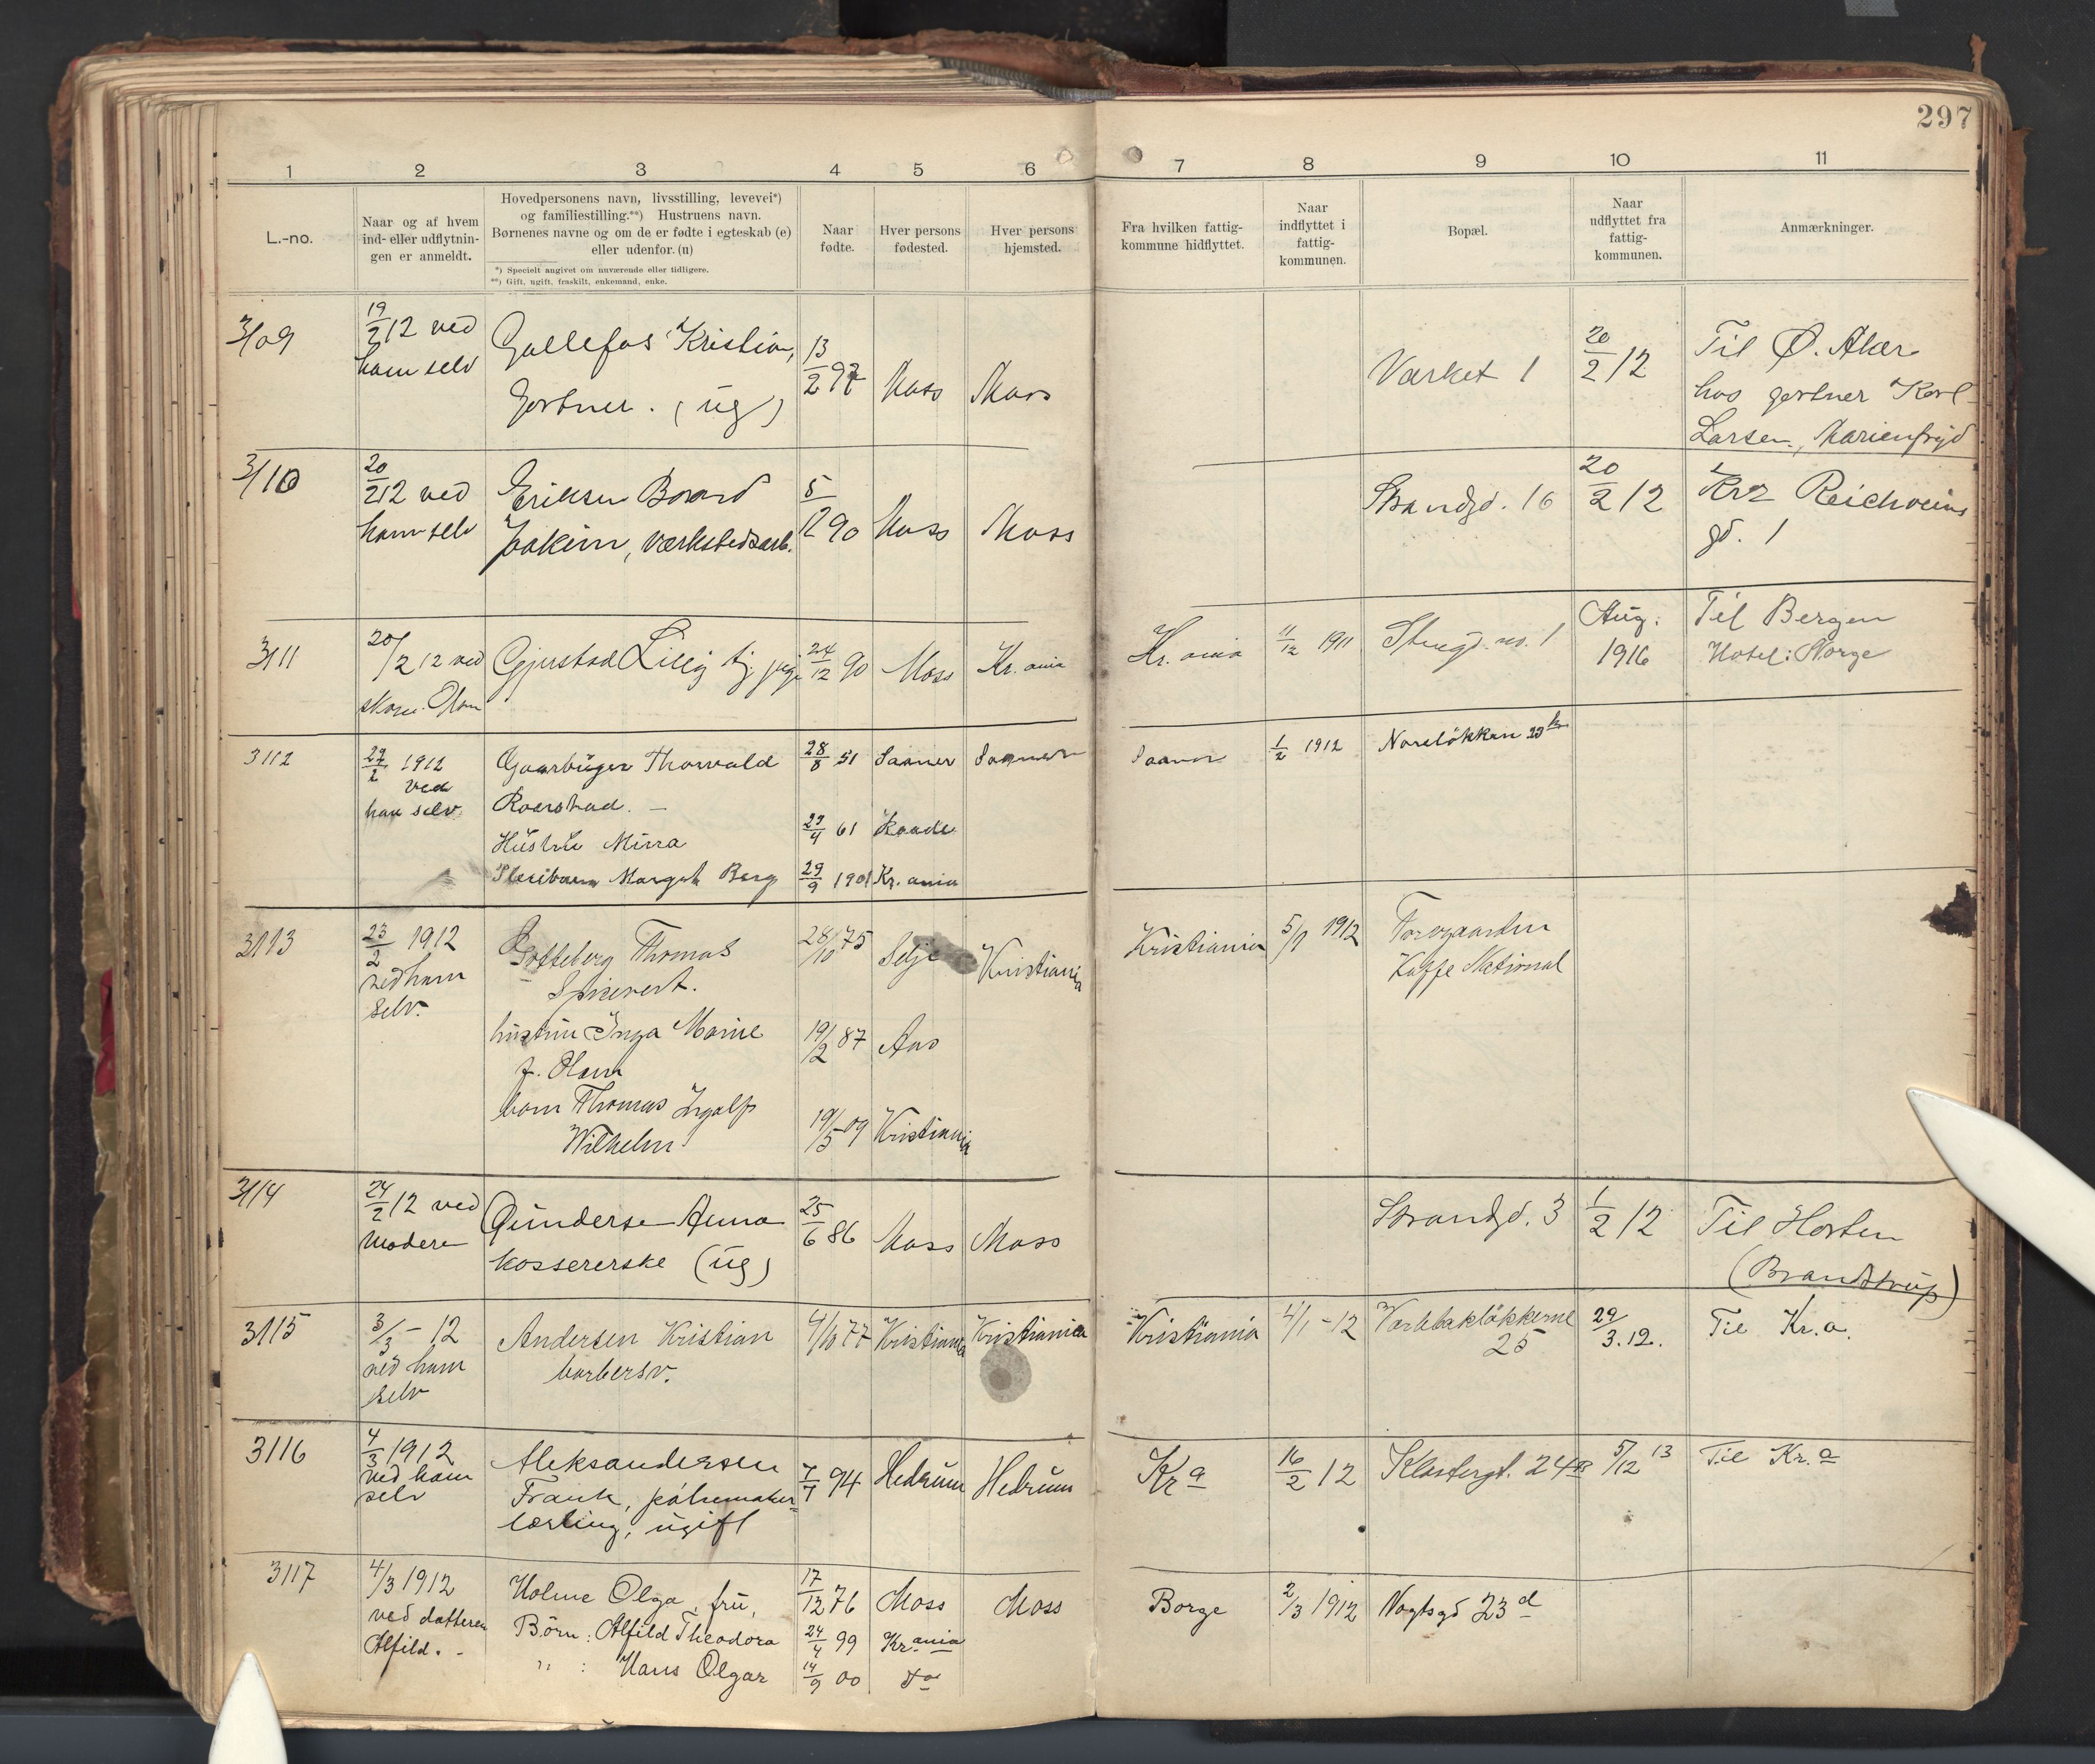 297
1 2 3 4 5 6 7 8 9 10 11
L.-no.
Naar og af hvem
ind- eller udflytnin-
gen er anmeldt.
Hovedpersonens navn, livsstilling, levevei*)
og familiestilling.**) Hustruens navn.
Børnenes navne og om de er fødte i egteskab (e)
eller udenfor. (u)
*) Specielt angivet om nuværende eller tidligere.
**) Gift, ugift, fraskilt, enkemand, enke.
Naar
fødte.
Hver persons
fødested.
Hver persons
hjemsted.
Fra hvilken fattig-
kommune hidflyttet.
Naar
indflyttet i
fattig-
kommunen.
Bopæl.
Naar
udflyttet fra
fattig-
kommunen.
Anmærkninger.
3109
19/2 12 ved
ham selv
Gullefos Kristian,
Gartner. (ug)
13/2 97
Moss
Moss
Værket 1
20/2 12
Til Ø. Aker
hos gartner Karl
Larsen, Marienfryd
3110
20/2 12 ved
ham selv
Eriksen
Joakim, værkstedsarb.
5/12 90
Moss
Moss
Strandgd. 16
20/2 12
gd. 1
3111
20/2 12 ved
Gjerstad Lilly
24/12 90
Moss
Kr.ania
Kr.ania
11/12 1911
Aug.
1916
Til Bergen
Hotel: Norge
3112
22/2 1912
ved
han selv
Gaarbruger Thorvald
Roarstad. —
Hustru Mina
Pleiebarn Margit Berg
28/8 51
29/4 61
29/9 1901
Saaner
Raade
Kr.ania
Saaner
Saaner
1/2 1912
Noreløkken 23 b
3113
23/2 1912
ved ham
selv.
Gotteberg Thomas
Spisevert.
hustru Inga Marie
f. Olsen
barn Thomas Ingolf
Wilhelm
28/10 75
19/2 87
19/5 09
Selje
Aas
Kristiania
Kristiania
Kristiania
5/1 1912
Torvgaarden
Kaffe National
3114
24/2 12 ved
Moderen
Gundersen Anna
kassererske (ug)
25/6 86
Moss
Moss
Strandgd. 3
1/2 12
Til Horten
(Brandstrup)
3115
3/3 - 12
ved ham
selv
Andersen Kristian
barbersv.
4/10 77
Kristiania
Kristiania
Kristiania
4/1 - 12
Varkbakløkkerne
25
29/3.12.
Til Kr.a.
3116
4/3 1912
ved ham
selv
Aleksandersen
Frank, pølsemaker-
lærling, ugift
7/7 94
Hedrum
Hedrum
Kra
16/2 12
Klostergt. 24 B
5/12 13
Til Kr.a
3117
4/3 1912
ved datteren
Alfild. -
Holme Olga, fru,
Børn: Alfild Theodora
" : Hans Olgar
17/12 76
24/4 99
14/9 00
Moss
Kr.ania
do
Moss
Borge
2/3 1912
Vogtsgd 23 d